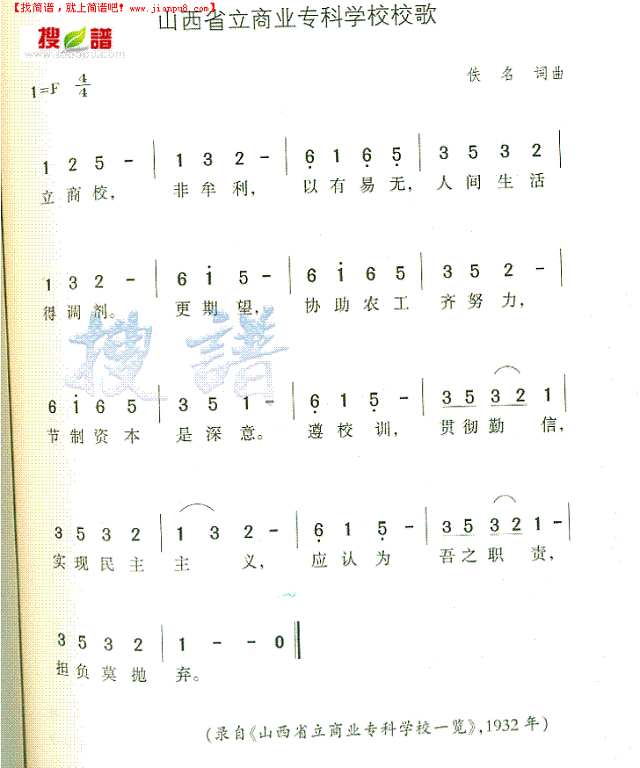 【找简谱，就上简谱吧】 www.jianpu8.com
山西省立商业专科学校校歌
搜谱
www.sooopu.com
1=F 4/4
佚名 词曲
1 2 5 - | 1 3 2 - | 6 1 6 5 | 3 5 3 2 |
立商校， 非牟利， 以有易无， 人间生活
1 3 2 - | 6 i 5 - | 6 i 6 5 | 3 5 2 - |
得调剂。 更期望， 协助农工 齐努力，
搜谱
6 i 6 5 | 3 5 1 - | 6 1 5 - | 3 5 3 2 1 |
节制资本 是深意。 遵校训， 贯彻勤信，
3 5 3 2 | 1 3 2 - | 6 1 5 - | 3 5 3 2 1 - |
实现民主 主义， 应认为 吾之职责，
3 5 3 2 | 1 - - 0 ‖
担负莫抛 弃。
(录自《山西省立商业专科学校一览》,1932年)